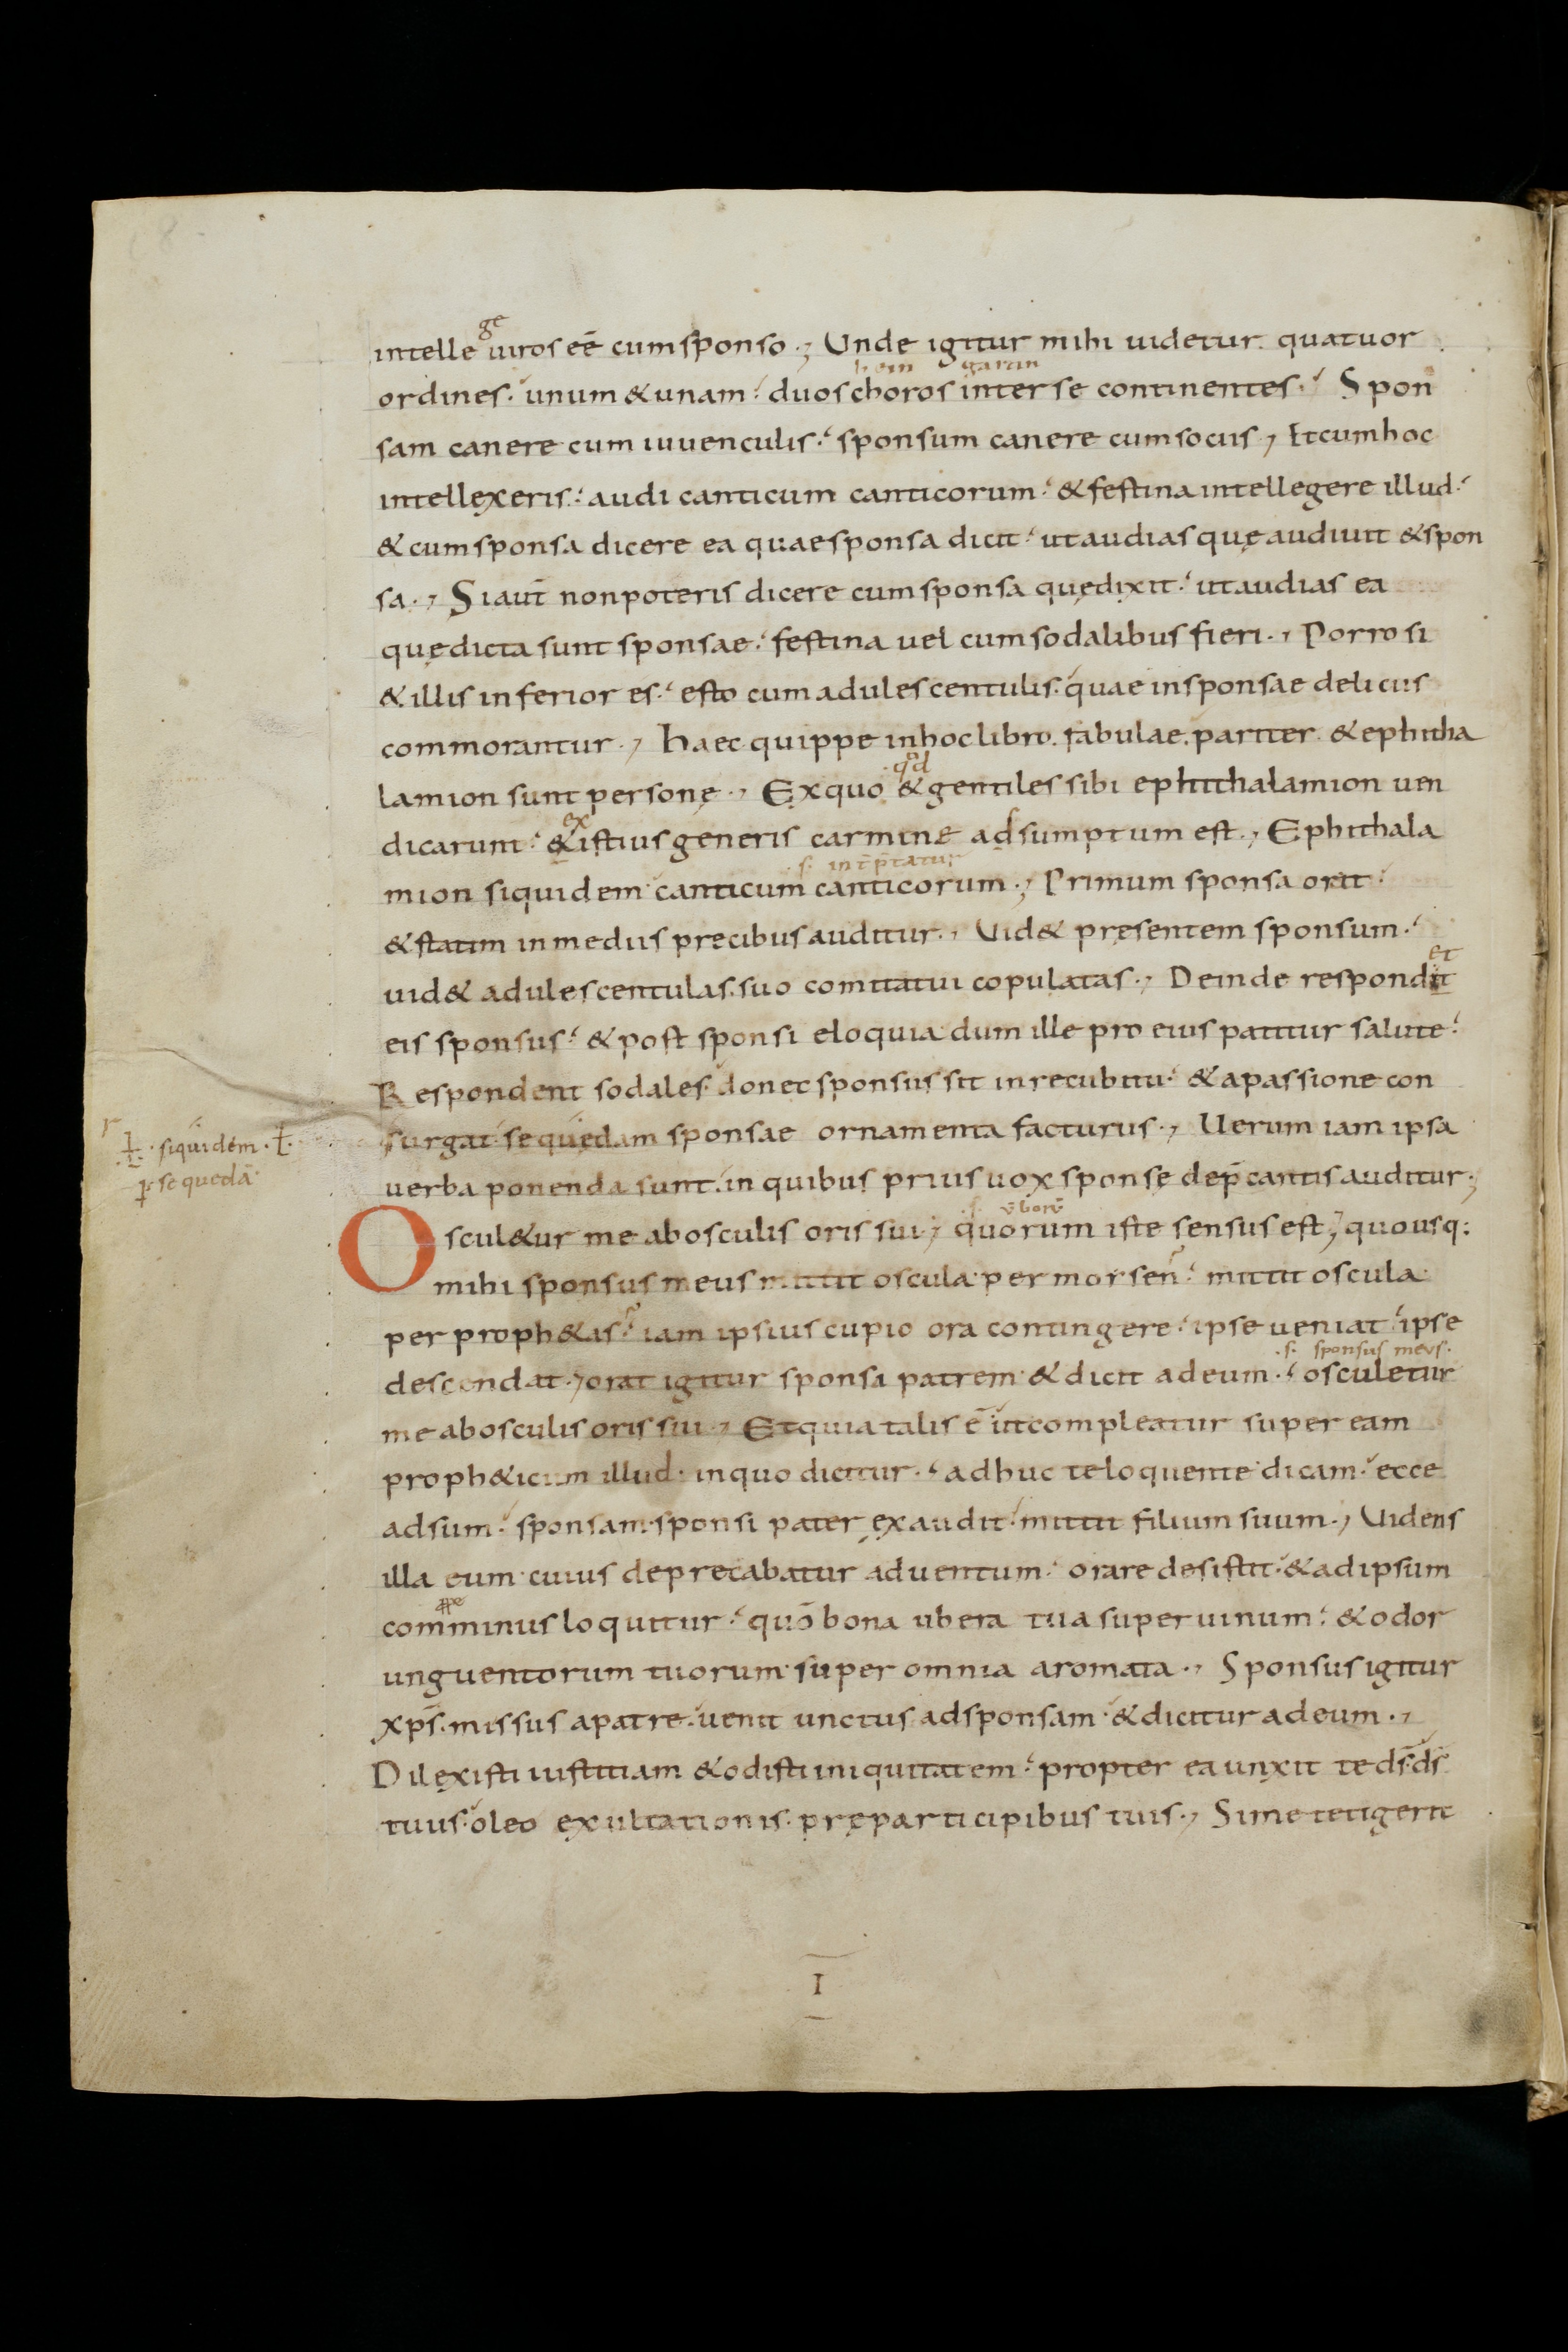 ge
intelle uiros eē cum sponso ·; Unde igitur mihi uidetur quatuor
ordines · unum & unam · duos choros inter se continentes · Spon
sam canere cum iuuenculis · sponsum canere cum sociis ·, Et cum hoc
intellexeris · audi canticum canticorum · & festina intellegere illud ·
& cum sponsa dicere ea quae sponsa dicit · ut audias quę audiuit & spon
sa ·, Si aut̄ non poteris dicere cum sponsa quę dixit · ut audias ea
quę dicta sunt sponsae · festina uel cum sodalibus fieri ·, Porro si
& illis inferior es · esto cum adulescentulis · quae in sponsae deliciis
commorantur ·, haec quippe in hoc libro · fabulae · pariter · & ephitha
qđ
lamion sunt personę ·, Ex quo & gentiles sibi ephithalamion uen
ex
dicarunt · & istius generis carmine adsumptum est ·, Ephithala
·s· int̄p̄tatur
mion siquidem canticum canticorum ·; Primum sponsa orat ·
& statim in mediis precibus auditur ·, Uid& pręsentem sponsum ·
et
uid& adulescentulas · suo comitatui copulatas ·, Deinde respondit
eis sponsus · & post sponsi eloquia dum ille pro eius patitur salute ·
Respondent sodales · donec sponsus sit in recubitu · & a passione con
surgat · se quędam sponsae ornamenta facturus ·, Uerum iam ipsa
r
siquidem · ł ·
se quedā
uerba ponenda sunt · in quibus prius uox sponsę dep̄cantis auditur ·;
·s· v̄borv̄
Oscul&ur me ab osculis oris sui ·; quorum iste sensus est ·; quousq:
mihi sponsus meus mittit oscula per morsen · mittit oscula
per proph&as · iam ipsius cupio ora contingere · ipse ueniat · ipse
·s· sponsus mevs ·
descendat ·, orat igitur sponsa patrem & dicit ad eum · osculetur
me ab osculis oris sui ·, Et quia talis ē ut compleatur super eam
proph&icum illud · in quo dicitur · adhuc te loquente dicam · ecce
adsum · sponsam sponsi pater exaudit · mittit filium suum ·, Uidens
illa eum cuius deprecabatur aduentum · orare desistit · & ad ipsum
comminus loquitur · quō bona ubera tua super uinum · & odor
unguentorum tuorum super omnia aromata ·, Sponsus igitur
xp̄s · missus a patre · uenit unctus ad sponsam · & dicitur ad eum ·,
Dilexisti iustitiam & odisti iniquitatem · propter ea unxit te d̄s · d̄s
tuus · oleo exultationis · pre participibus tuis ·, Si me tetigerit
I